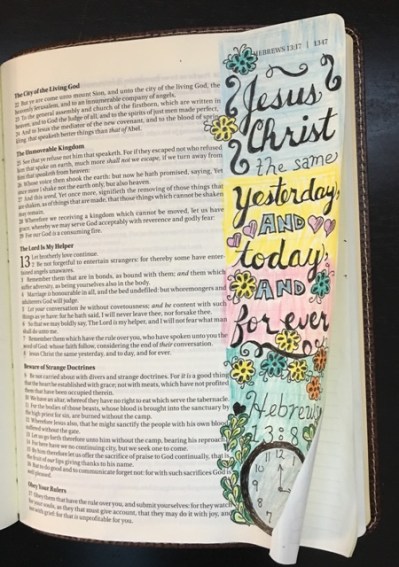 HEBREWS 13:17 | 1347
The City of the Living God
22 But ye are come unto mount Sion, and unto the city of the living God, the
heavenly Jerusalem, and to an innumerable company of angels,
23 To the general assembly and church of the firstborn, which are written in
heaven, and to God the Judge of all, and to the spirits of just men made perfect,
24 And to Jesus the mediator of the new covenant, and to the blood of
that speaketh better things than that of Abel.
The Unmoveable Kingdom
25 See that ye refuse not him that speaketh. For if they escaped not who refused
him that spake on earth, much more shall not we escape, if we turn away from
him that speaketh from heaven:
26 Whose voice then shook the earth: but now he hath promised, saying, Yet
once more I shake not the earth only, but also heaven.
27 And this word, Yet once more, signifieth the removing of those things that
are shaken, as of things that are made, that those things which cannot be shaken
may remain.
28 Wherefore we receiving a kingdom which cannot be moved, let us have
grace, whereby we may serve God acceptably with reverence and godly fear:
29 For our God is a consuming fire.
The Lord Is My Helper
13 Let brotherly love continue.
2 Be not forgetful to entertain strangers: for thereby some have enter-
tained angels unawares.
3 Remember them that are in bonds, as bound with them; and them which
suffer adversity, as being yourselves also in the body.
4 Marriage is honourable in all, and the bed undefiled: but whoremongers and
adulterers God will judge.
5 Let your conversation be without covetousness; and be content with such
things as ye have: for he hath said, I will never leave thee, nor forsake thee.
6 So that we may boldly say, The Lord is my helper, and I will not fear what man
shall do unto me.
7 Remember them which have the rule over you, who have spoken unto you the
word of God: whose faith follow, considering the end of their conversation.
8 Jesus Christ the same yesterday, and to day, and for ever.
Beware of Strange Doctrines
9 Be not carried about with divers and strange doctrines. For it is a good thing
that the heart be established with grace; not with meats, which have not profited
them that have been occupied therein.
10 We have an altar, whereof they have no right to eat which serve the tabernacle.
11 For the bodies of those beasts, whose blood is brought into the sanctuary by
the high priest for sin, are burned without the camp.
12 Wherefore Jesus also, that he might sanctify the people with his own blood,
suffered without the gate.
13 Let us go forth therefore unto him without the camp, bearing his reproach.
14 For here have we no continuing city, but we seek one to come.
15 By him therefore let us offer the sacrifice of praise to God continually, that is,
the fruit of our lips giving thanks to his name.
16 But to do good and to communicate forget not: for with such sacrifices God is
well pleased.
Obey Your Rulers
17 Obey them that have the rule over you, and submit yourselves: for they watch
for your souls, as they that must give account, that they may do it with joy, and
not with grief: for that is unprofitable for you.
Jesus
Christ
the same
Yesterday,
AND
today,
AND
for ever
Hebrews
13:8
11 12
10
9
8
7